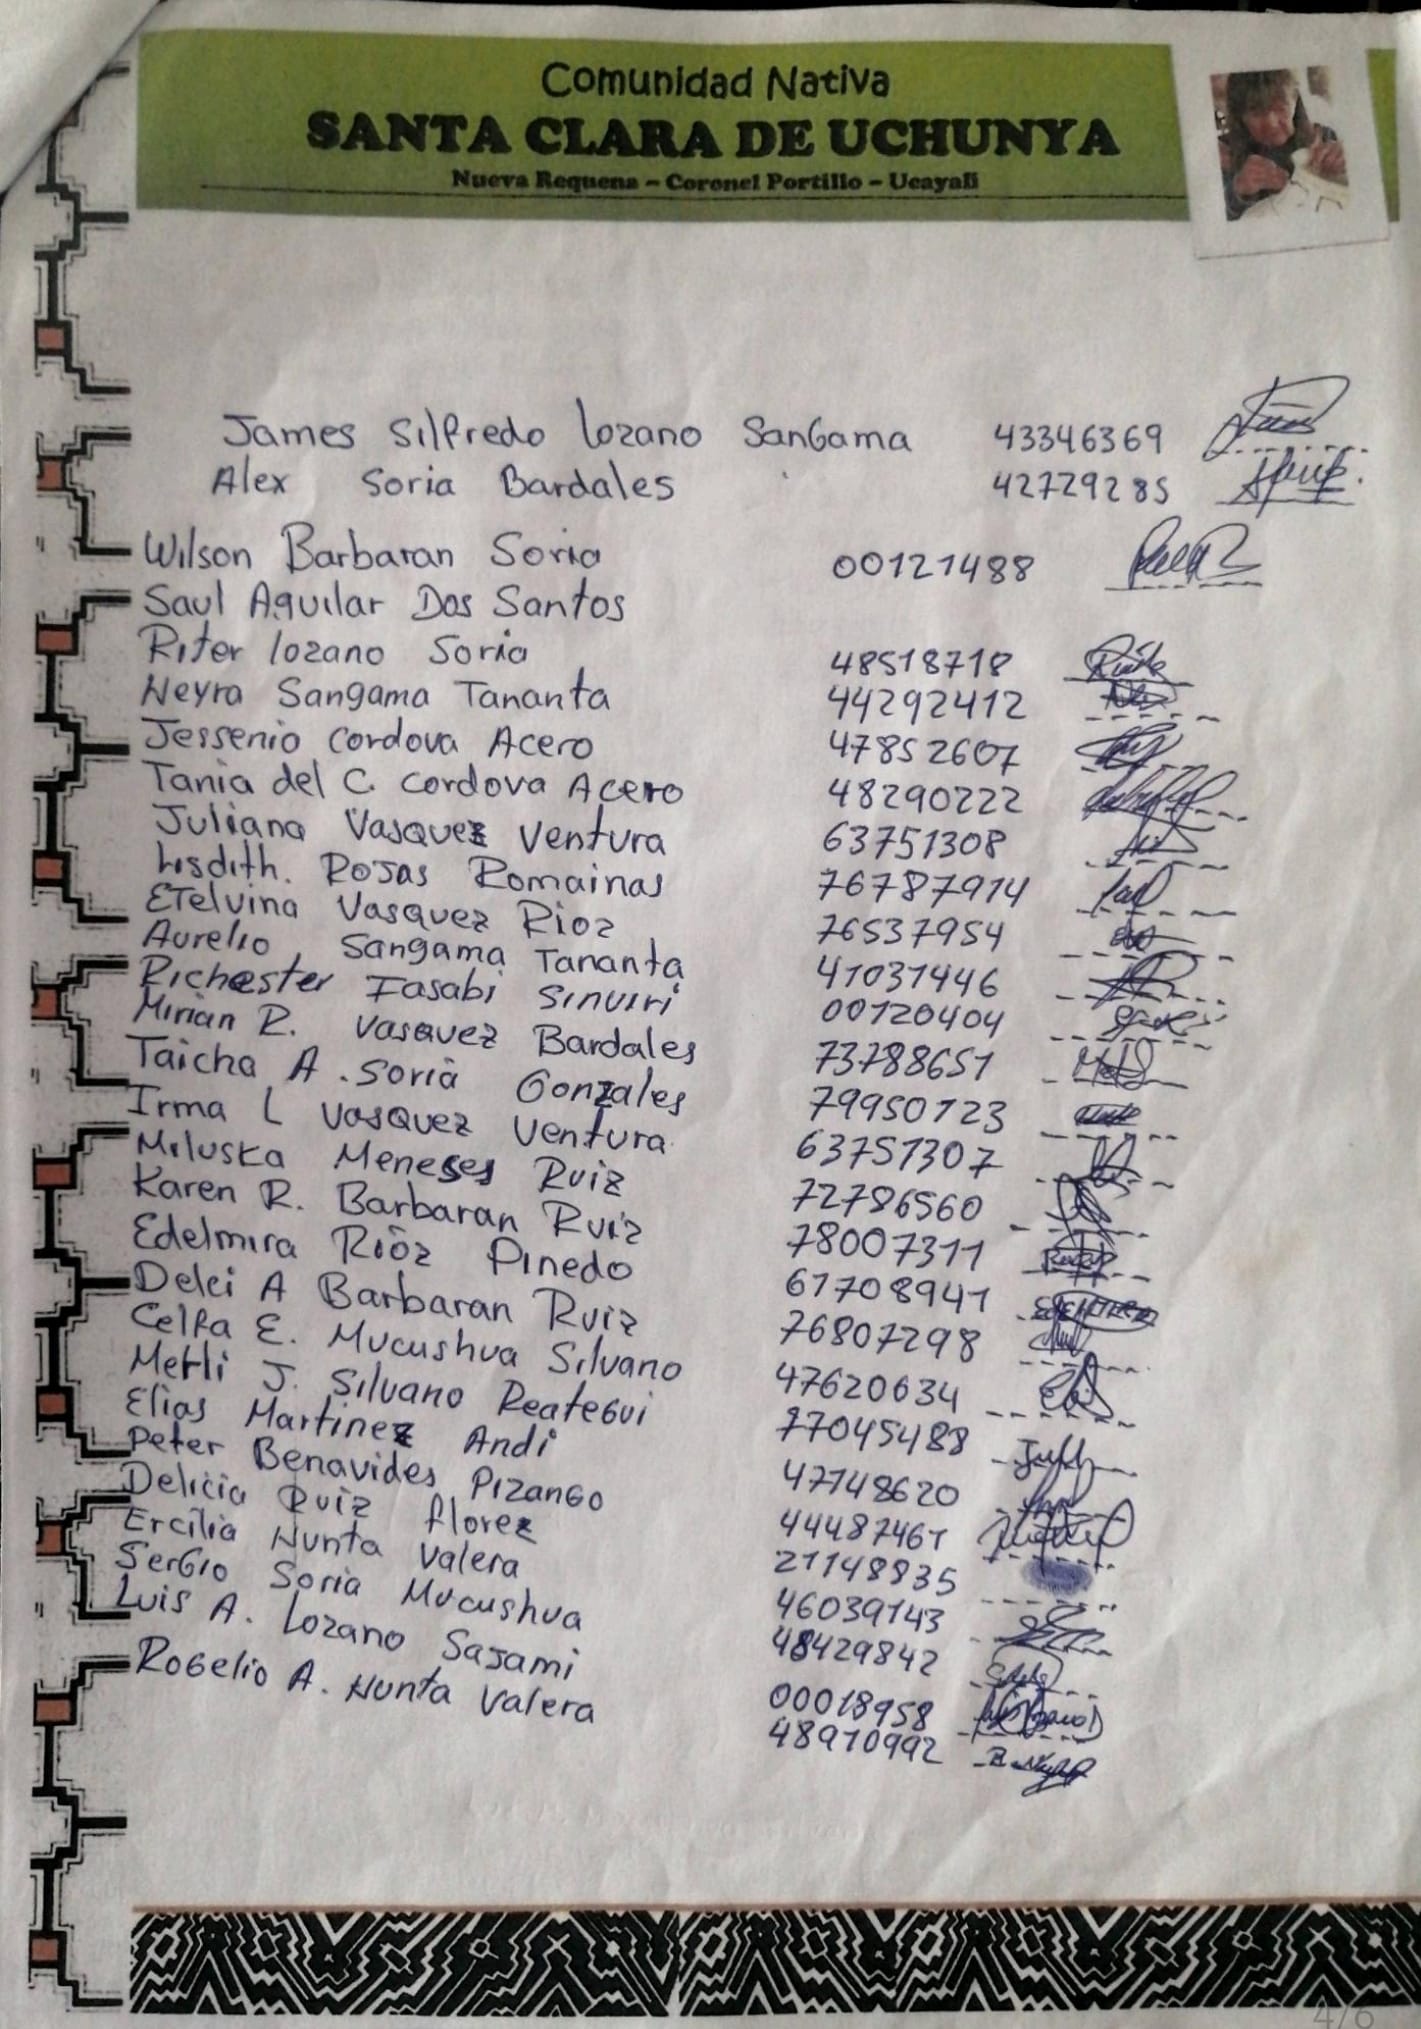 Comunidad Nativa
SANTA CLARA DE UCHUNYA
Nueva Requena – Coronel Portillo – Ucayali
James Silfredo Lozano SanGama 43346369
Alex Soria Bardales 42729285
Wilson Barbaran Soria 00121488
Saul Aguilar Dos Santos
Riter lozano Soria 48518718
Neyra Sangama Tananta 44292412
Jessenio cordova Acero 47852607
Tania del C. cordova Acero 48290222
Juliana Vasquez Ventura 63751308
Lisdith. Rojas Romainas 76787914
ETelvina Vasquez Rioz 76537954
Aurelio Sangama Tananta 41031446
Richester Fasabi Sinuiri 00120404
Mirian R. Vasquez Bardales 73788651
Taicha A. Soria Gonzales 79950123
Irma L Vasquez Ventura 63751307
Miluska Meneses Ruiz 72786560
Karen R. Barbaran Ruiz 78007311
Edelmira Rioz Pinedo 61708941
Delci A Barbaran Ruiz 76807298
Celfa E. Mucushua Silvano 47620634
Metli J. Silvano Reategui 77045488
Elias Martinez Andi 47148620
Peter Benavides PizanGo 44487461
Delicia Ruiz florez 21148835
Ercilia Nunta Valera 46039143
SerGio Soria Mucushua 48429842
Luis A. Lozano Sajami 00018958
RoGelio A. Nunta Valera 48910992
4/6